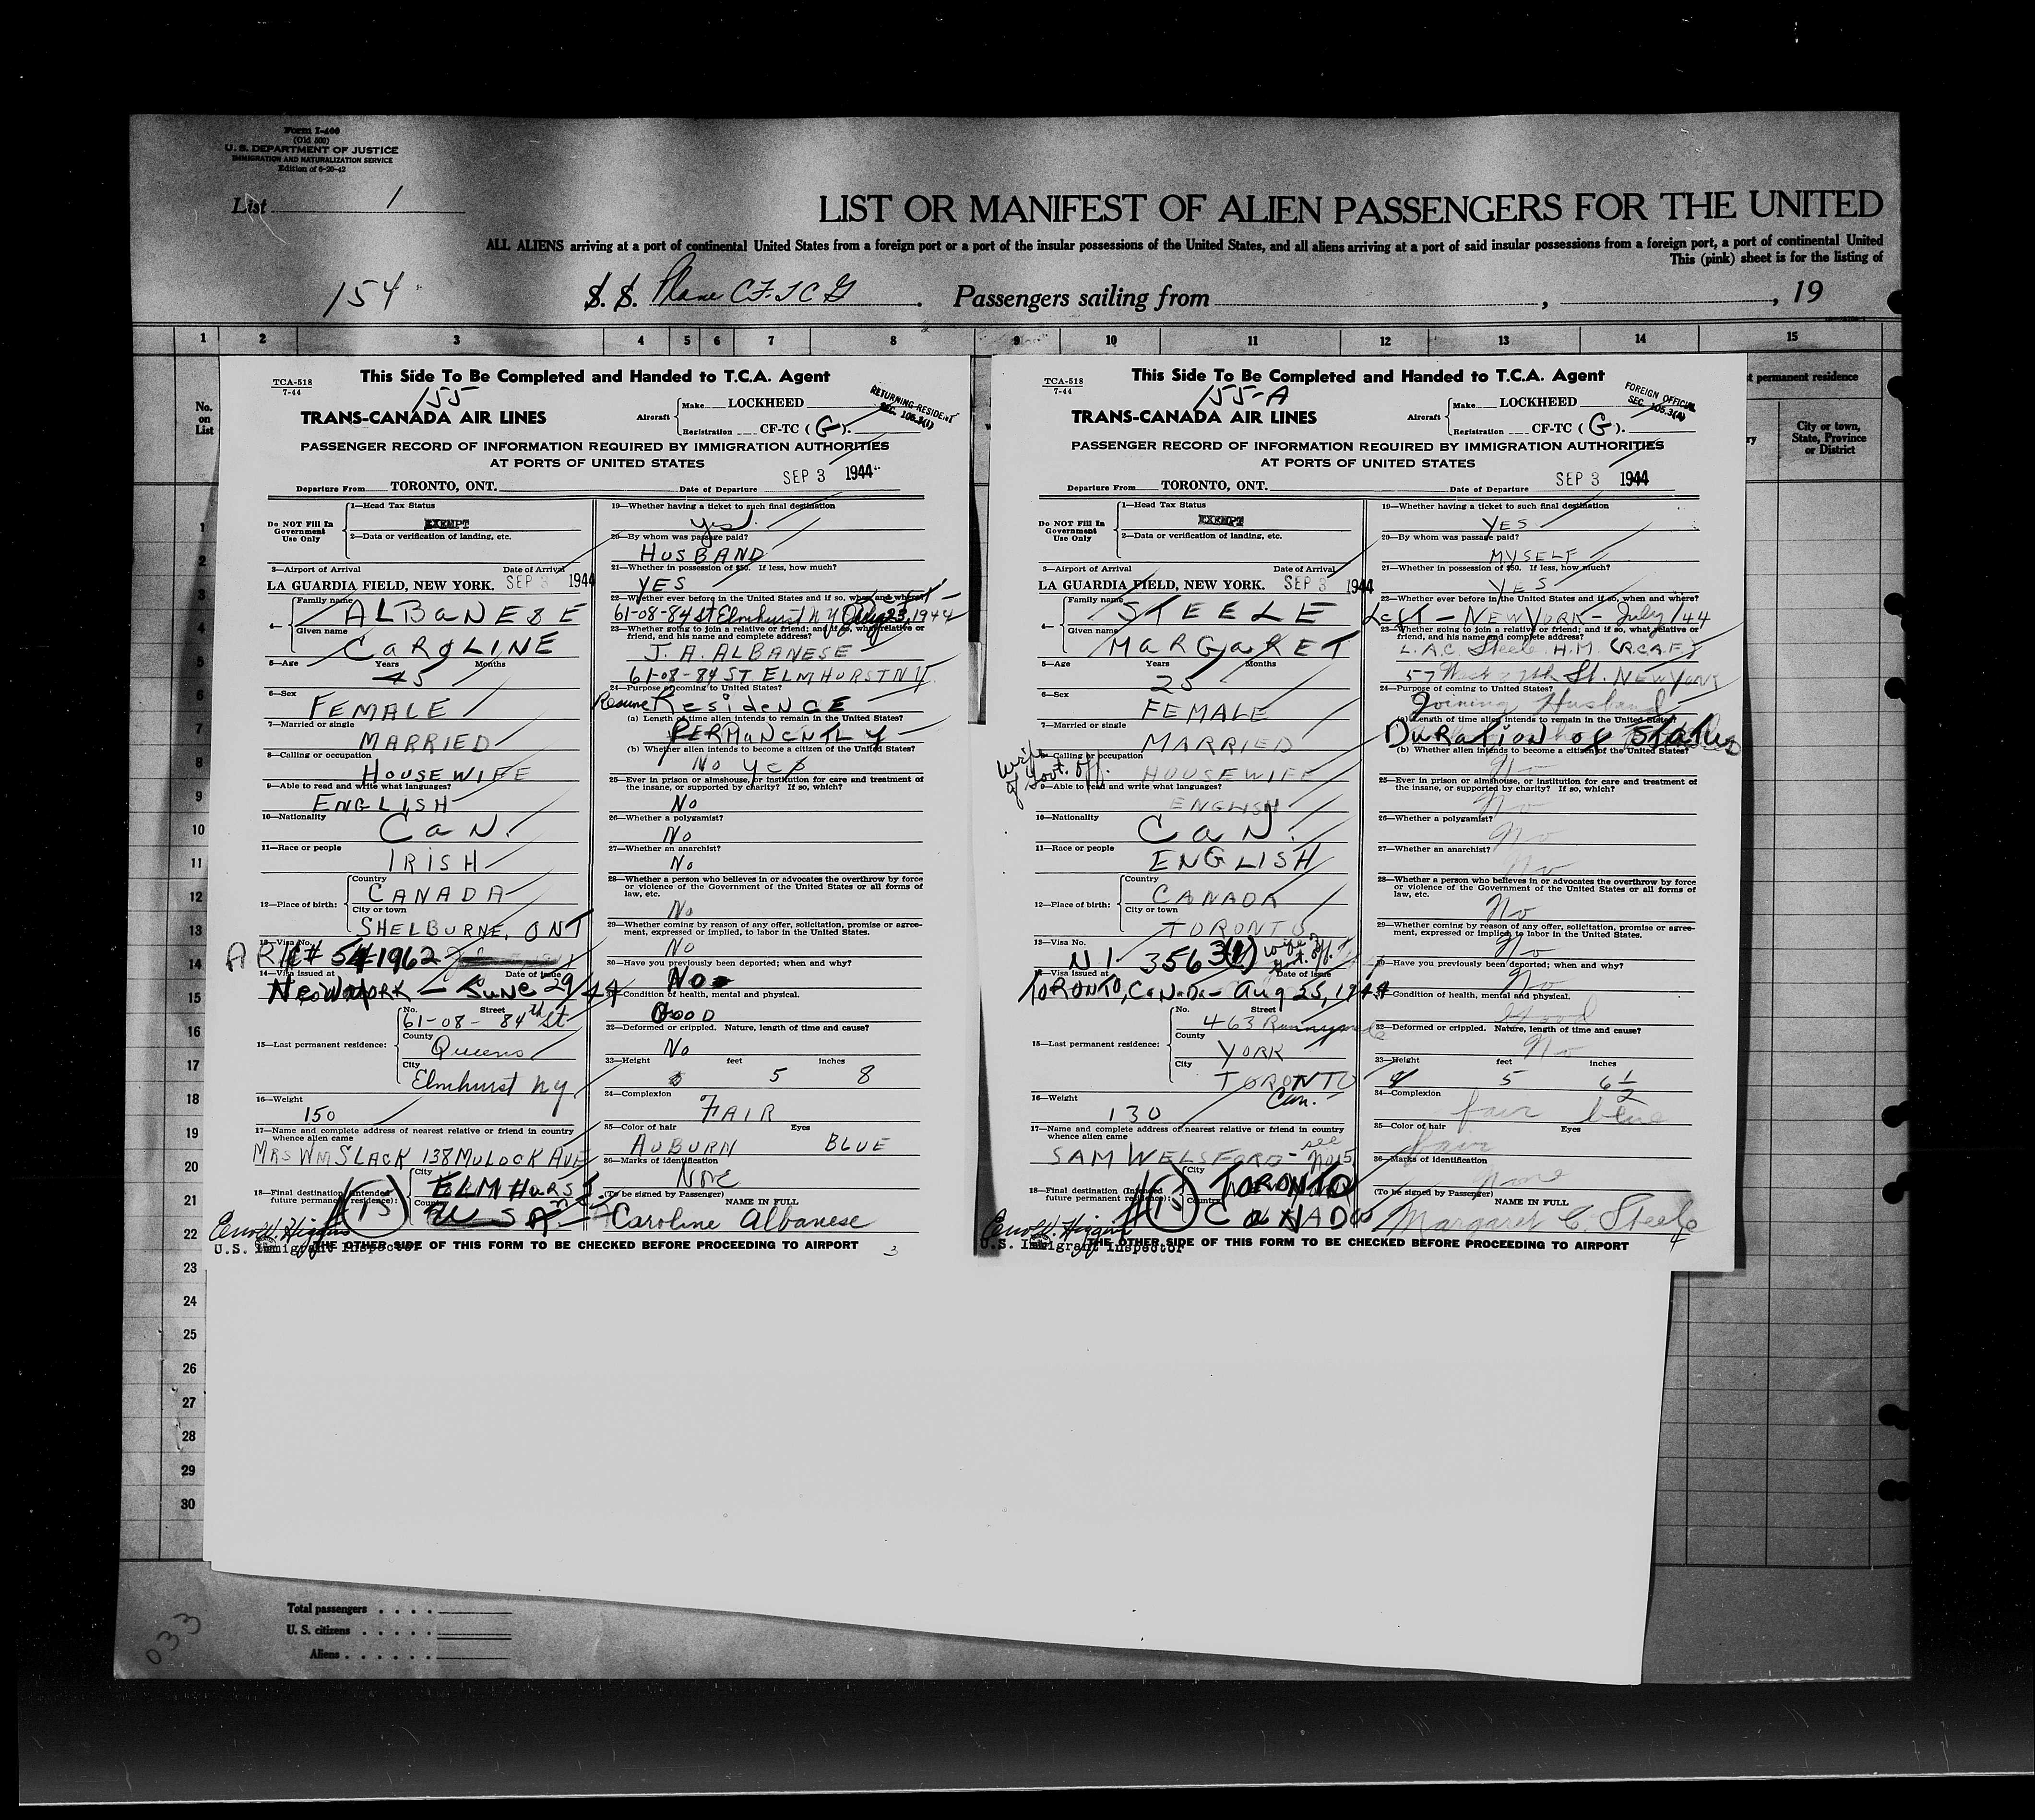 Form I-400
(Old 500)
U. S. DEPARTMENT OF JUSTICE
IMMIGRATION AND NATURALIZATION SERVICE
Edition of 6-20-42
List 1
LIST OR MANIFEST OF ALIEN PASSENGERS FOR THE UNITED
ALL ALIENS arriving at a port of continental United States from a foreign port or a port of the insular possessions of the United States, and all aliens arriving at a port of said insular possessions from a foreign port, a port of continental United
This (pink) sheet is for the listing of
154 S. S. Plane CF. TC G. Passengers sailing from , , 19
1 2 3 4 5 6 7 8 9 10 11 12 13 14 15
No.
on
List
t permanent residence
ry
City or town,
State, Province
or District
This Side To Be Completed and Handed to T.C.A. Agent
TCA-518
7-44
155
TRANS-CANADA AIR LINES
Aircraft
Make LOCKHEED
Registration CF-TC (G).
RETURNING RESIDENT
SEC. 105.3(1)
PASSENGER RECORD OF INFORMATION REQUIRED BY IMMIGRATION AUTHORITIES
AT PORTS OF UNITED STATES
Departure From TORONTO, ONT. Date of Departure SEP 3 1944
Do NOT Fill In
Government
Use Only
1—Head Tax Status
EXEMPT
2—Data or verification of landing, etc.
3—Airport of Arrival Date of Arrival
LA GUARDIA FIELD, NEW YORK. SEP 3 1944
4—
Family name ALBANESE
Given name CAROLINE
5—Age Years Months
45
6—Sex
FEMALE
7—Married or single
MARRIED
8—Calling or occupation
HOUSEWIFE
9—Able to read and write what languages?
ENGLISH
10—Nationality
CAN.
11—Race or people
IRISH
12—Place of birth:
Country
CANADA
City or town
SHELBURNE, ONT
13—Visa No.
AR# 54-1962
14—Visa issued at Date of issue
New York — June 29/44
15—Last permanent residence:
No. Street
61-08-84th St
County
Queens
City
Elmhurst NY
16—Weight
150
17—Name and complete address of nearest relative or friend in country
whence alien came
MRS WM SLACK 138 MULOCK AVE
18—Final destination (Intended
future permanent residence):
#(15)
City
ELMHURST
Country
U S A
19—Whether having a ticket to such final destination
yes.
20—By whom was passage paid?
HUSBAND
21—Whether in possession of $50. If less, how much?
YES
22—Whether ever before in the United States and if so, when and where?
61-08-84 St Elmhurst N Y Aug 23, 1944
23—Whether going to join a relative or friend; and if so, what relative or
friend, and his name and complete address?
J. A. ALBANESE
61-08-84 ST ELMHURST N Y.
24—Purpose of coming to United States?
Resume RESIDENCE
(a) Length of time alien intends to remain in the United States?
PERMANENTLY
(b) Whether alien intends to become a citizen of the United States?
No yes
25—Ever in prison or almshouse, or institution for care and treatment of
the insane, or supported by charity? If so, which?
No
26—Whether a polygamist?
No
27—Whether an anarchist?
No
28—Whether a person who believes in or advocates the overthrow by force
or violence of the Government of the United States or all forms of
law, etc.
No
29—Whether coming by reason of any offer, solicitation, promise or agree-
ment, expressed or implied, to labor in the United States.
No
30—Have you previously been deported; when and why?
No
31—Condition of health, mental and physical.
GOOD
32—Deformed or crippled. Nature, length of time and cause?
No
33—Height feet inches
5 8
34—Complexion
FAIR
35—Color of hair Eyes
AUBURN BLUE
36—Marks of identification
NONE
(To be signed by Passenger) NAME IN FULL
Caroline Albanese
Errol W. Higgins
U.S. Immigrant Inspector
THE OTHER SIDE OF THIS FORM TO BE CHECKED BEFORE PROCEEDING TO AIRPORT
3
This Side To Be Completed and Handed to T.C.A. Agent
TCA-518
7-44
155-A
TRANS-CANADA AIR LINES
Aircraft
Make LOCKHEED
Registration CF-TC (G).
FOREIGN OFFICIAL
SEC. 105.3(4)
PASSENGER RECORD OF INFORMATION REQUIRED BY IMMIGRATION AUTHORITIES
AT PORTS OF UNITED STATES
Departure From TORONTO, ONT. Date of Departure SEP 3 1944
Do NOT Fill In
Government
Use Only
1—Head Tax Status
EXEMPT
2—Data or verification of landing, etc.
3—Airport of Arrival Date of Arrival
LA GUARDIA FIELD, NEW YORK. SEP 3 1944
4—
Family name STEELE
Given name MARGARET
5—Age Years Months
25
6—Sex
FEMALE
7—Married or single
MARRIED
wife
of Govt. Off.
8—Calling or occupation
HOUSEWIFE
9—Able to read and write what languages?
ENGLISH
10—Nationality
CAN.
11—Race or people
ENGLISH
12—Place of birth:
Country
CANADA
City or town
TORONTO
13—Visa No.
NI 3563(1) wife of Govt. Off.
14—Visa issued at Date of issue
TORONTO, CaNaDa - Aug 25, 1944
15—Last permanent residence:
No. Street
463 Runnymede
County
YORK
City
TORONTO
Can.
16—Weight
130
17—Name and complete address of nearest relative or friend in country
whence alien came
SAM WELSFORD - see No 15
18—Final destination (Intended
future permanent residence):
#(15)
City
TORONTO
Country
CANADA
19—Whether having a ticket to such final destination
YES
20—By whom was passage paid?
MYSELF
21—Whether in possession of $50. If less, how much?
YES
22—Whether ever before in the United States and if so, when and where?
Left - NEW YORK - July/44
23—Whether going to join a relative or friend; and if so, what relative or
friend, and his name and complete address?
L.A.C. Steele. H.M. (R.C.A.F.)
57 West 7th St. NEW YORK
24—Purpose of coming to United States?
Joining Husband
(a) Length of time alien intends to remain in the United States?
DURATION of Status
(b) Whether alien intends to become a citizen of the United States?
No
25—Ever in prison or almshouse, or institution for care and treatment of
the insane, or supported by charity? If so, which?
No
26—Whether a polygamist?
No
27—Whether an anarchist?
No
28—Whether a person who believes in or advocates the overthrow by force
or violence of the Government of the United States or all forms of
law, etc.
No
29—Whether coming by reason of any offer, solicitation, promise or agree-
ment, expressed or implied, to labor in the United States.
No
30—Have you previously been deported; when and why?
No
31—Condition of health, mental and physical.
Good
32—Deformed or crippled. Nature, length of time and cause?
No
33—Height feet inches
5 6 1/2
34—Complexion
fair blue
35—Color of hair Eyes
fair
36—Marks of identification
None
(To be signed by Passenger) NAME IN FULL
Margaret C. Steele
4
Errol W. Higgins
U.S. Immigrant Inspector
THE OTHER SIDE OF THIS FORM TO BE CHECKED BEFORE PROCEEDING TO AIRPORT
1
2
3
4
5
6
7
8
9
10
11
12
13
14
15
16
17
18
19
20
21
22
23
24
25
26
27
28
29
30
Total passengers . . . .
U. S. citizens . . . . .
Aliens . . . . . .
033